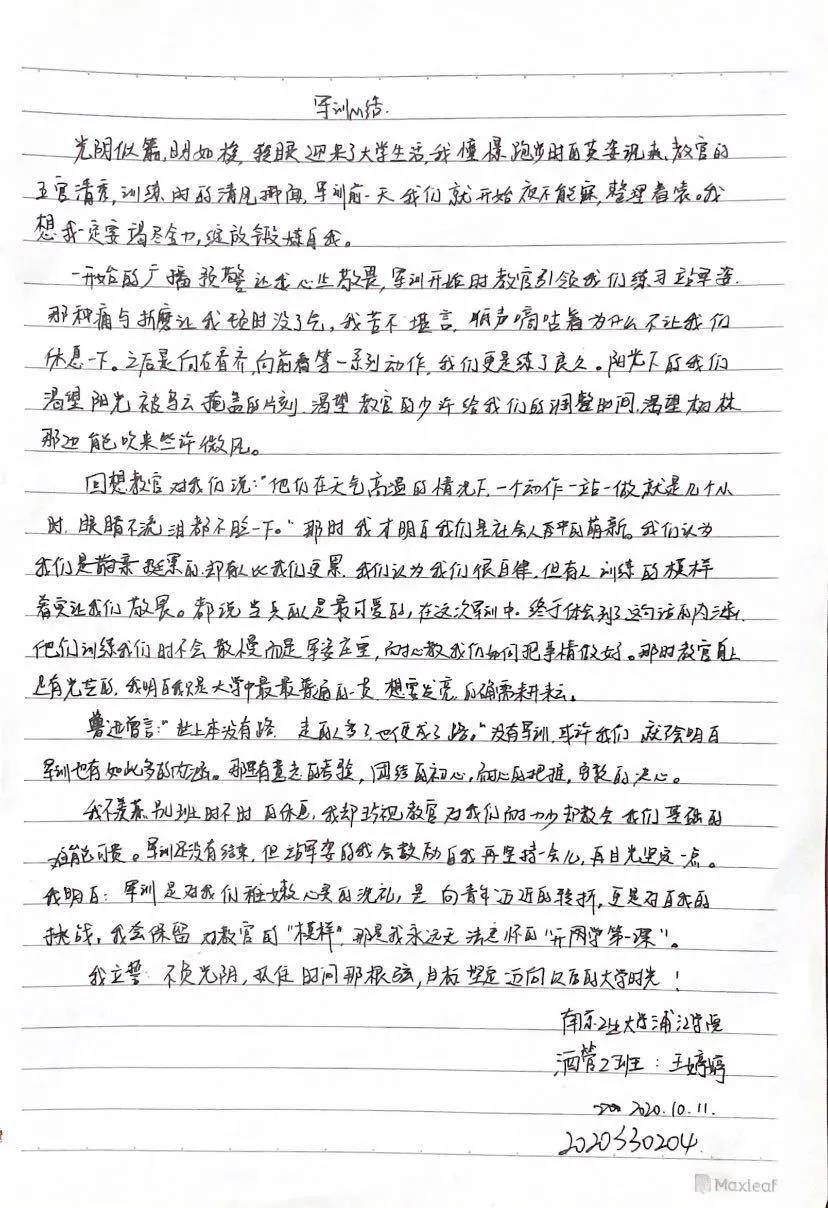 军训小结.
光阴似箭,日月如梭,转眼迎来了大学生活,我憧憬跑步时的英姿飒爽,教官的
五官清秀,训练时的清风拂面,军训前一天我们就开始夜不能寐,整理着装。我
想我一定要竭尽全力,绽放锻炼自我。
一开始的广播预警让我心生敬畏,军训开始时教官引领我们练习站军姿.
那种痛与折磨让我顿时没了气,我苦不堪言,低声嘀咕着为什么不让我们
休息一下。之后是向右看齐,向前看等一系列动作,我们更是练了良久。阳光下的我们
渴望阳光被乌云掩盖的片刻,渴望教官的少许给我们的调整时间,渴望树林
那边能吹来些许微风。
回想教官对我们说:"他们在天气高温的情况下,一个动作一站一做就是几个小
时,眼睛不流泪都不眨一下。"那时我才明白我们是社会人员中的萌新。我们认为
我们是挺累的,却有人比我们更累,我们认为我们很自律,但有人训练的模样
着实让我们敬畏。都说当兵的人是最可爱的,在这次军训中,终于体会到了这句话的内涵,
他们训练我们时不会散慢而是军姿庄重,耐心教我们如何把事情做好。那时教官身上
是有光芒的,我明白我只是大学中最最普通的一员,想要发亮,的确需耕耘。
鲁迅曾言:"世上本没有路,走的人多了,也便成了路。"没有军训,或许我们就不会明白
军训也有如此多的内涵。那里有意志的考验,团结的初心,耐心的把握,勇敢的决心。
我不羡慕别班时不时的休息,我却珍视教官对我们耐力少却教会我们基础的
难能可贵。军训还没有结束,但站军姿的我会鼓励自我再坚持一会儿,再目光坚定一点。
我明白:军训是对我们稚嫩心灵的洗礼,是向青年迈进的转折,更是对自我的
挑战,我会保留对教官的"模样",那是我永远无法忘怀的"开网学第一课"。
我立誓:不负光阴,抓住时间那根弦,目标坚定迈向以后的大学时光!
南京工业大学浦江学院
酒管2班:王婷婷
2020.10.11.
2020330204.
Maxleaf